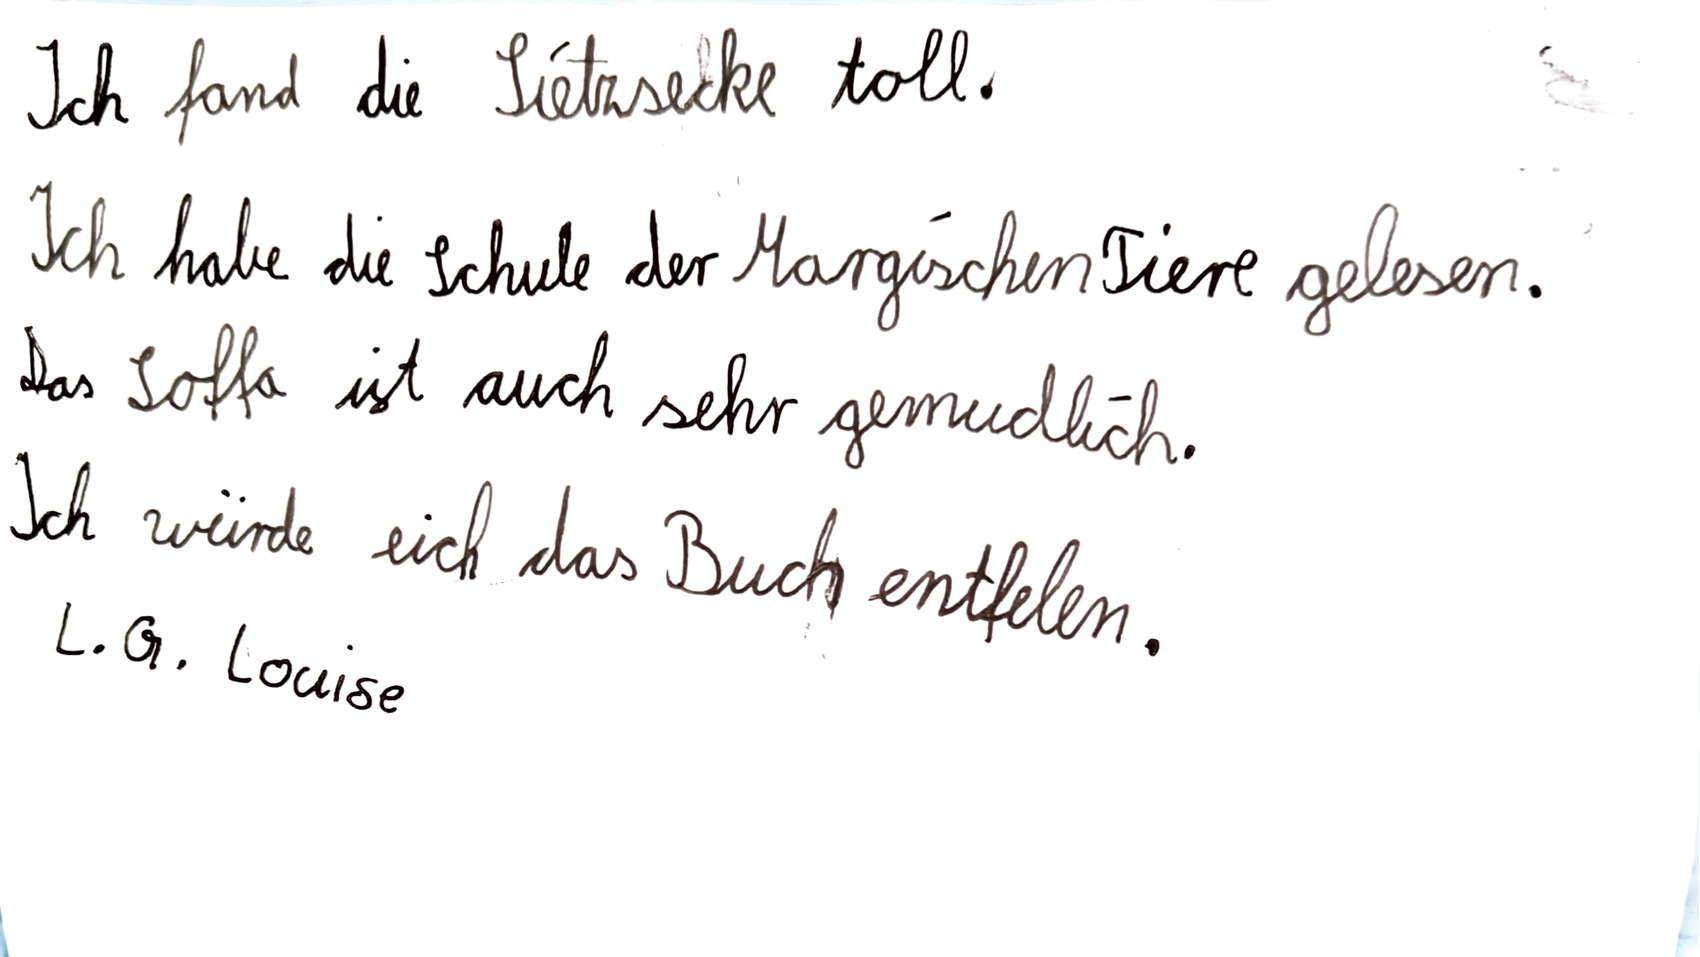 Ich fand die Sietzsecke toll.
Ich habe die Schule der Margischen Tiere gelesen.
Das Soffa ist auch sehr gemudlich.
Ich würde eich das Buch entfelen.
L. G. Louise